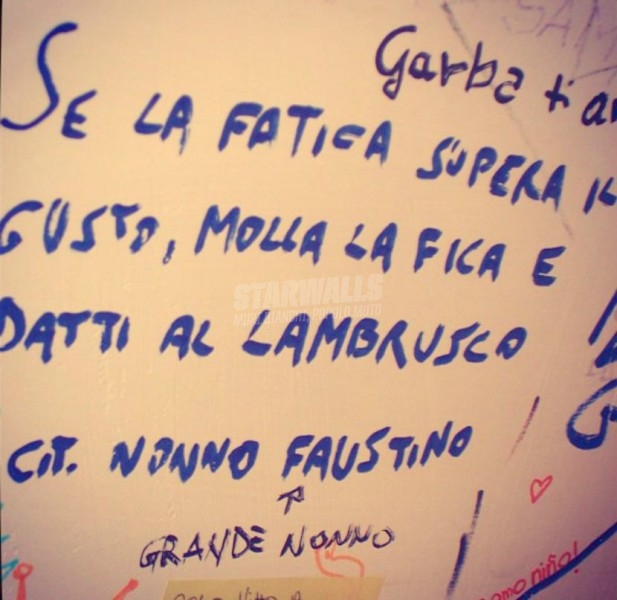 Garba + a
SE LA FATICA SUPERA IL
GUSTO, MOLLA LA FICA E
STARWALLS
DATTI AL LAMBRUSCO
CIT. NONNO FAUSTINO
GRANDE NONNO
omo niño!